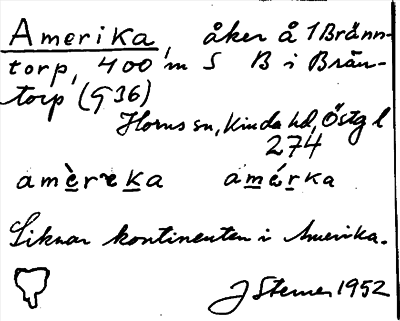 Amerika, åker å 1 Bränn-
torp, 400 m S B i Brän-
torp (G36)
Horns sn, Kinda hd, Östg l
274
amèreka amérka
Liknar kontinenten i Amerika.
J Sterner 1952